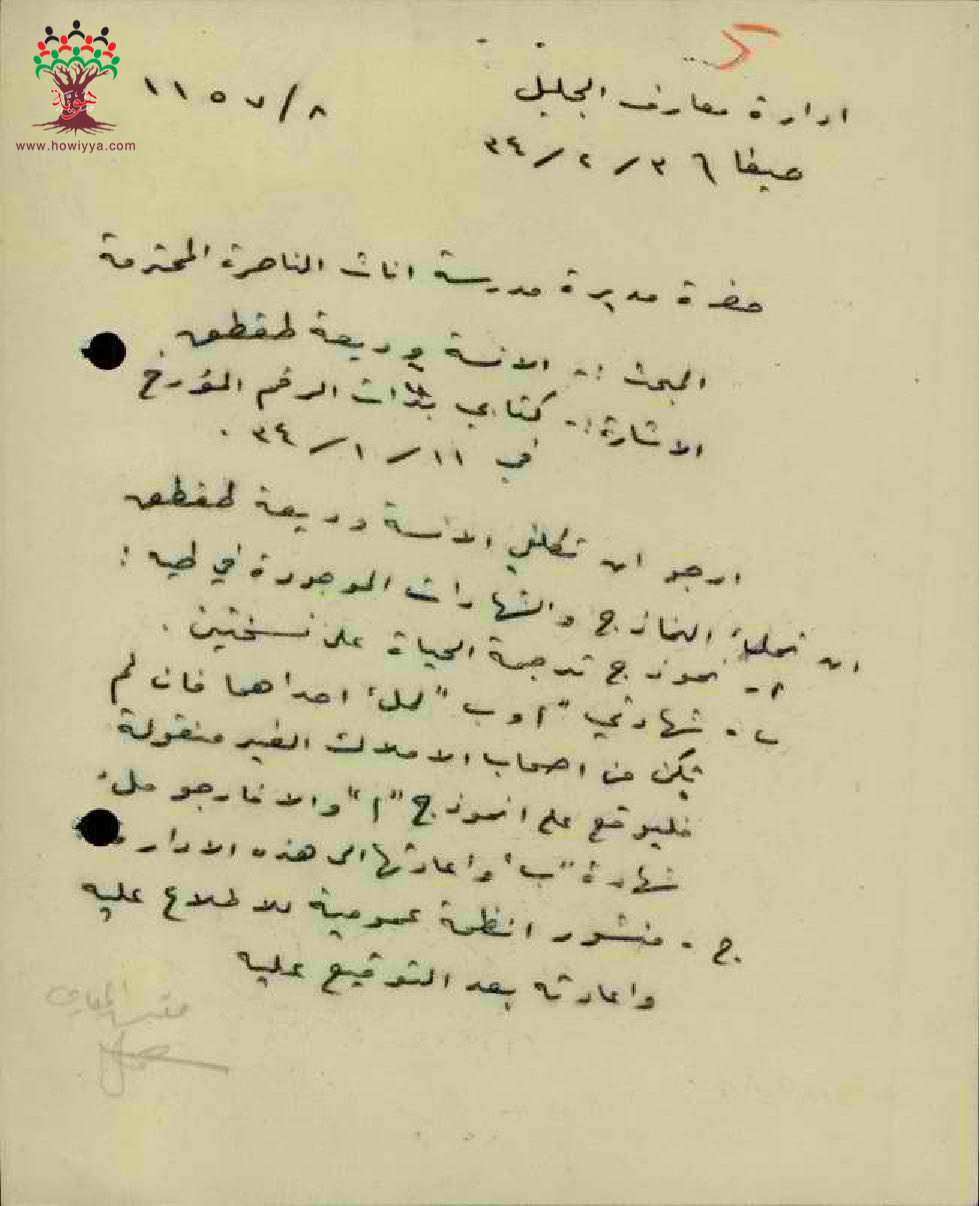 هوية
www.howiyya.com
٨/١١٥٧
ادارة معارف الجليل
حيفا ٣٦/٢/٣٤
حضرة مديرة مدرسة اناث الناصرة المحترمة
البحث :- الانسة وديعة طقطق
الاشارة :- كتابي بذات الرقم المؤرخ
في ١١/١/٣٤ .
ارجو ان تكلفي الانسة وديعة طقطق
ان تملأ النماذج والشهادات الموجودة في طيه :
أ - نموذج ترجمة الحياة على نسختين .
ب - شهادتي "ا وب" لملء احداهما فان لم
تكن من اصحاب الاملاك الغير منقولة
فليوقع على انموذج "ا" والا فارجو ملء
شهادة "ب" واعادتها الى هذه الادارة
ج - منشور انظمة عمومية للاطلاع عليه
واعادته بعد التوقيع عليه
مفتش المعارف